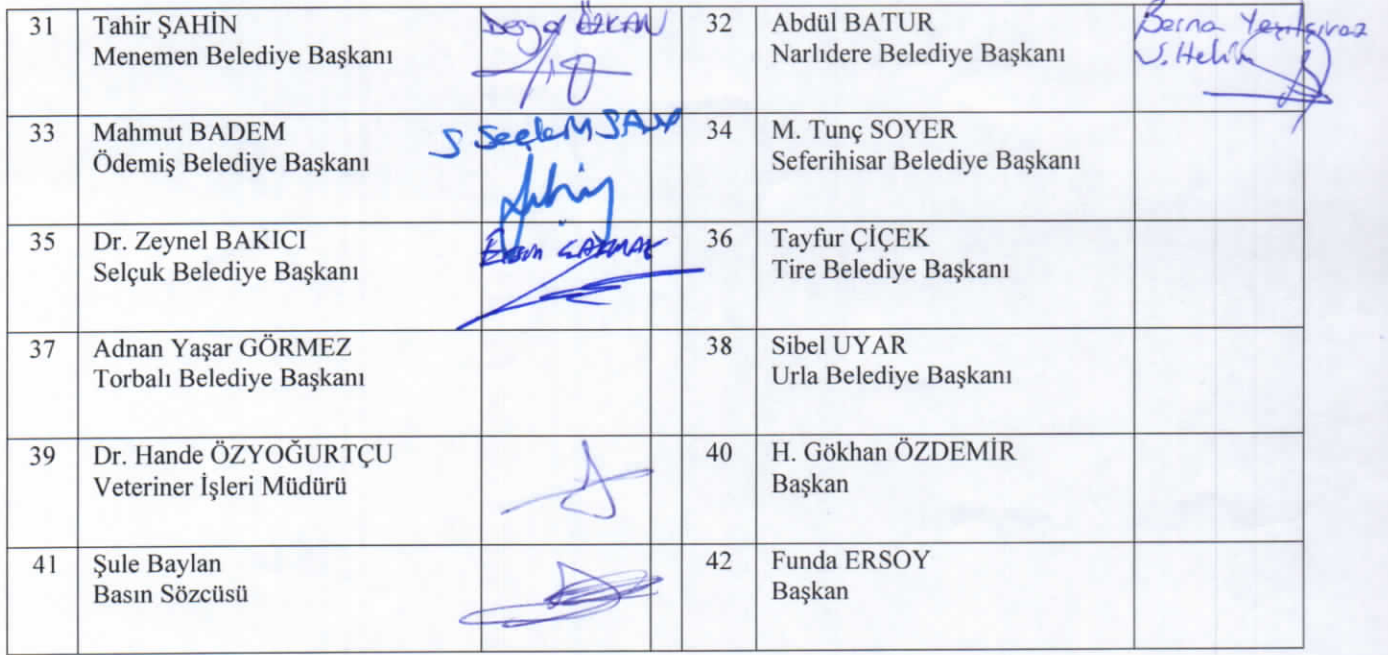 31 Tahir ŞAHİN
Menemen Belediye Başkanı
ÖZKAN
32 Abdül BATUR
Narlıdere Belediye Başkanı
Berna
33 Mahmut BADEM
Ödemiş Belediye Başkanı
34 M. Tunç SOYER
Seferihisar Belediye Başkanı
35 Dr. Zeynel BAKICI
Selçuk Belediye Başkanı
36 Tayfur ÇİÇEK
Tire Belediye Başkanı
37 Adnan Yaşar GÖRMEZ
Torbalı Belediye Başkanı
38 Sibel UYAR
Urla Belediye Başkanı
39 Dr. Hande ÖZYOĞURTÇU
Veteriner İşleri Müdürü
40 H. Gökhan ÖZDEMİR
Başkan
41 Şule Baylan
Basın Sözcüsü
42 Funda ERSOY
Başkan